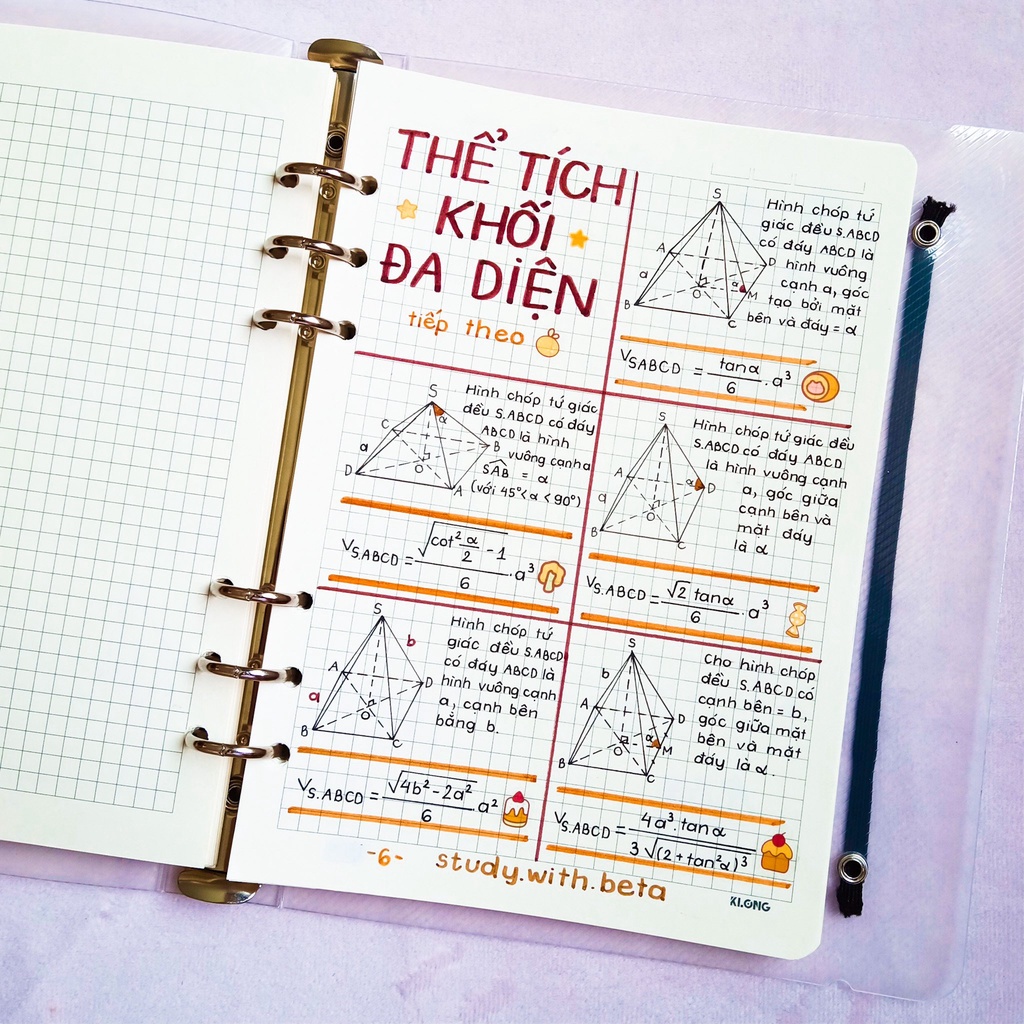 THỂ TÍCH
KHỐI
ĐA DIỆN
tiếp theo
S
A
a
B
O
α
D
M
C
Hình chóp tứ
giác đều S.ABCD
có đáy ABCD là
hình vuông
cạnh a, góc
tạo bởi mặt
bên và đáy = α
V_SABCD = tanα/6 . a³
S
α
C
a
D
O
B
A
Hình chóp tứ giác
đều S.ABCD có đáy
ABCD là hình
vuông cạnh a
SAB̂ = α
(với 45° < α < 90°)
V_S.ABCD = √(cot² α/2 - 1)/6 . a³
S
A
a
B
O
α
D
C
Hình chóp tứ giác đều
S.ABCD có đáy ABCD
là hình vuông cạnh
a, góc giữa
cạnh bên và
mặt đáy
là α
V_S.ABCD = √2 tanα/6 . a³
S
b
A
a
B
O
D
C
Hình chóp tứ
giác đều S.ABCD
có đáy ABCD là
hình vuông cạnh
a, cạnh bên
bằng b.
V_S.ABCD = √(4b² - 2a²)/6 . a²
S
b
A
B
O
α
D
M
C
Cho hình chóp
đều S.ABCD có
cạnh bên = b,
góc giữa mặt
bên và mặt
đáy là α.
V_S.ABCD = 4a³.tanα/3√(2+tan²α)³
-6- study.with.beta
KLONG